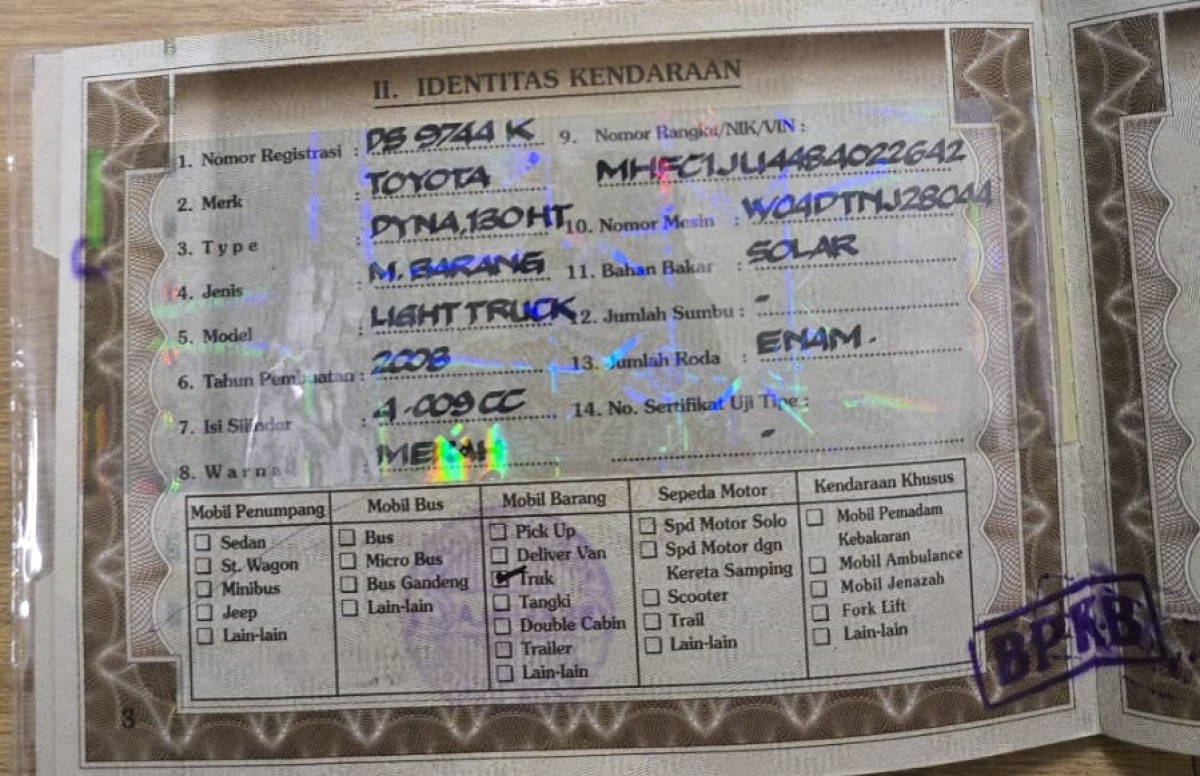 II. IDENTITAS KENDARAAN
1. Nomor Registrasi : DS 9744 K
2. Merk : TOYOTA
3. Type : DYNA,130HT
4. Jenis : M. BARANG
5. Model : LIGHT TRUCK
6. Tahun Pembuatan : 2008
7. Isi Silinder : 4.009 CC
8. Warna : MERAH
9. Nomor Rangka/NIK/VIN :
MHFC1JU4484022642
10. Nomor Mesin : W04DTNJ28044
11. Bahan Bakar : SOLAR
12. Jumlah Sumbu : -
13. Jumlah Roda : ENAM.
14. No. Sertifikat Uji Tipe :
-
Mobil Penumpang
Sedan
St. Wagon
Minibus
Jeep
Lain-lain
Mobil Bus
Bus
Micro Bus
Bus Gandeng
Lain-lain
Mobil Barang
Pick Up
Deliver Van
Truk
Tangki
Double Cabin
Trailer
Lain-lain
Sepeda Motor
Spd Motor Solo
Spd Motor dgn
Kereta Samping
Scooter
Trail
Lain-lain
Kendaraan Khusus
Mobil Pemadam
Kebakaran
Mobil Ambulance
Mobil Jenazah
Fork Lift
Lain-lain
BPKB
3